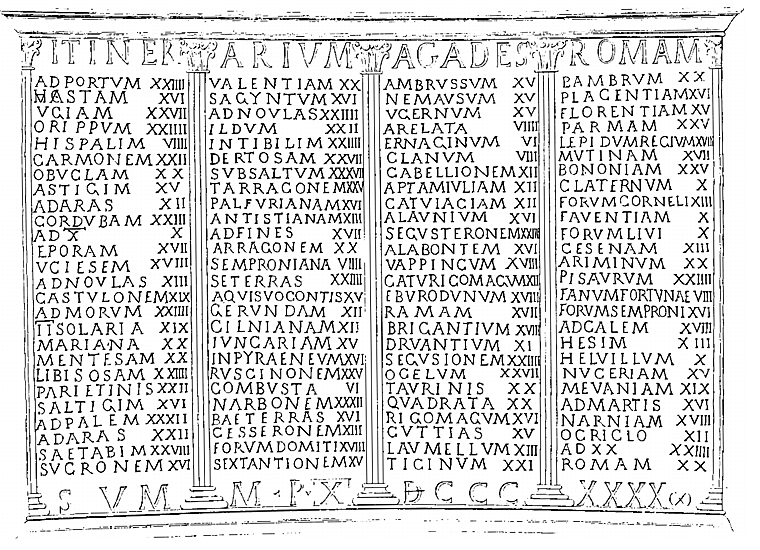 ITINERARIUM AGADES ROMAM
ADPORTVM XXIIII
HASTAM XVI
VGIAM XXVII
ORIPPVM XXIIII
HISPALIM VIIII
CARMONEM XXII
OBVCLAM XX
ASTIGIM XV
ADARAS XII
CORDVBAM XXIII
AD X̅ X
EPORAM XVII
VCIESEM XVIII
ADNOVLAS XIII
CASTVLONEM XIX
ADMORVM XXIIII
IISOLARIA XIX
MARIANA XX
MENTESAM XX
LIBISOSAM XXIIII
PARIETINIS XXII
SALTIGIM XVI
ADPALEM XXXII
ADARAS XXII
SAETABIM XXVIII
SVCRONEM XVI
VALENTIAM XX
SAGYNTVM XVI
ADNOVLAS XXIIII
ILDVM XXII
INTIBILIM XXIIII
DERTOSAM XXVII
SVBSALTVM XXXVII
TARRAGONEM XXV
PALFVRIANAM XVI
ANTISTIANAM XIII
ADFINES XVII
ARRAGONEM XX
SEMPRONIANA VIIII
SETERRAS XXIIII
AQVISVOCONTIS XV
GERVNDAM XII
CILNIANAM XII
IVNCARIAM XV
INPYRAENEVM XVI
RVSCINONEM XXV
COMBVSTA VI
NARBONEM XXXII
BAETERRAS XVI
CESSERONEM XIII
FORVMDOMITI XVIII
SEXTANTIONEM XV
AMBRVSSVM XV
NEMAVSVM XV
VGERNVM XV
ARELATA VIIII
ERNAGINVM VI
GLANVM VIII
CABELLIONEM XII
APTAMIVLIAM XII
CATVIACIAM XII
ALAVNIVM XVI
SEGVSTERONEM XXIIII
ALABONTEM XVI
VAPPINGVM XVIII
CATVRIGOMAGVM XII
EBVRODVNVM XVIII
RAMAM XVII
BRIGANTIVM XVIII
DRVANTIVM XI
SEGVSIONEM XXIIII
OCELVM XXVII
TAVRINIS XX
QVADRATA XX
RIGOMAGVM XVI
CVTTIAS XV
LAVMELLVM XIII
TICINVM XXI
BAMBRVM XX
PLACENTIAM XVI
FLORENTIAM XV
PARMAM XXV
LEPIDVMREGIVM XVII
MVTINAM XVII
BONONIAM XXV
CLATERNVM X
FORVMCORNELI XIII
FAVENTIAM X
FORVMLIVI X
CESENAM XIII
ARIMINVM XX
PISAVRVM XXIIII
FANVMFORTVNAE VIII
FORVMSEMPRONI XVI
ADGALEM XVIII
HESIM XIII
HELVILLVM X
NVCERIAM XV
MEVANIAM XIX
ADMARTIS XVI
NARNIAM XVIII
OCRICLO XII
ADXX XXIIII
ROMAM XX
SVM M·P·X̅ DCCC XXXX(X)